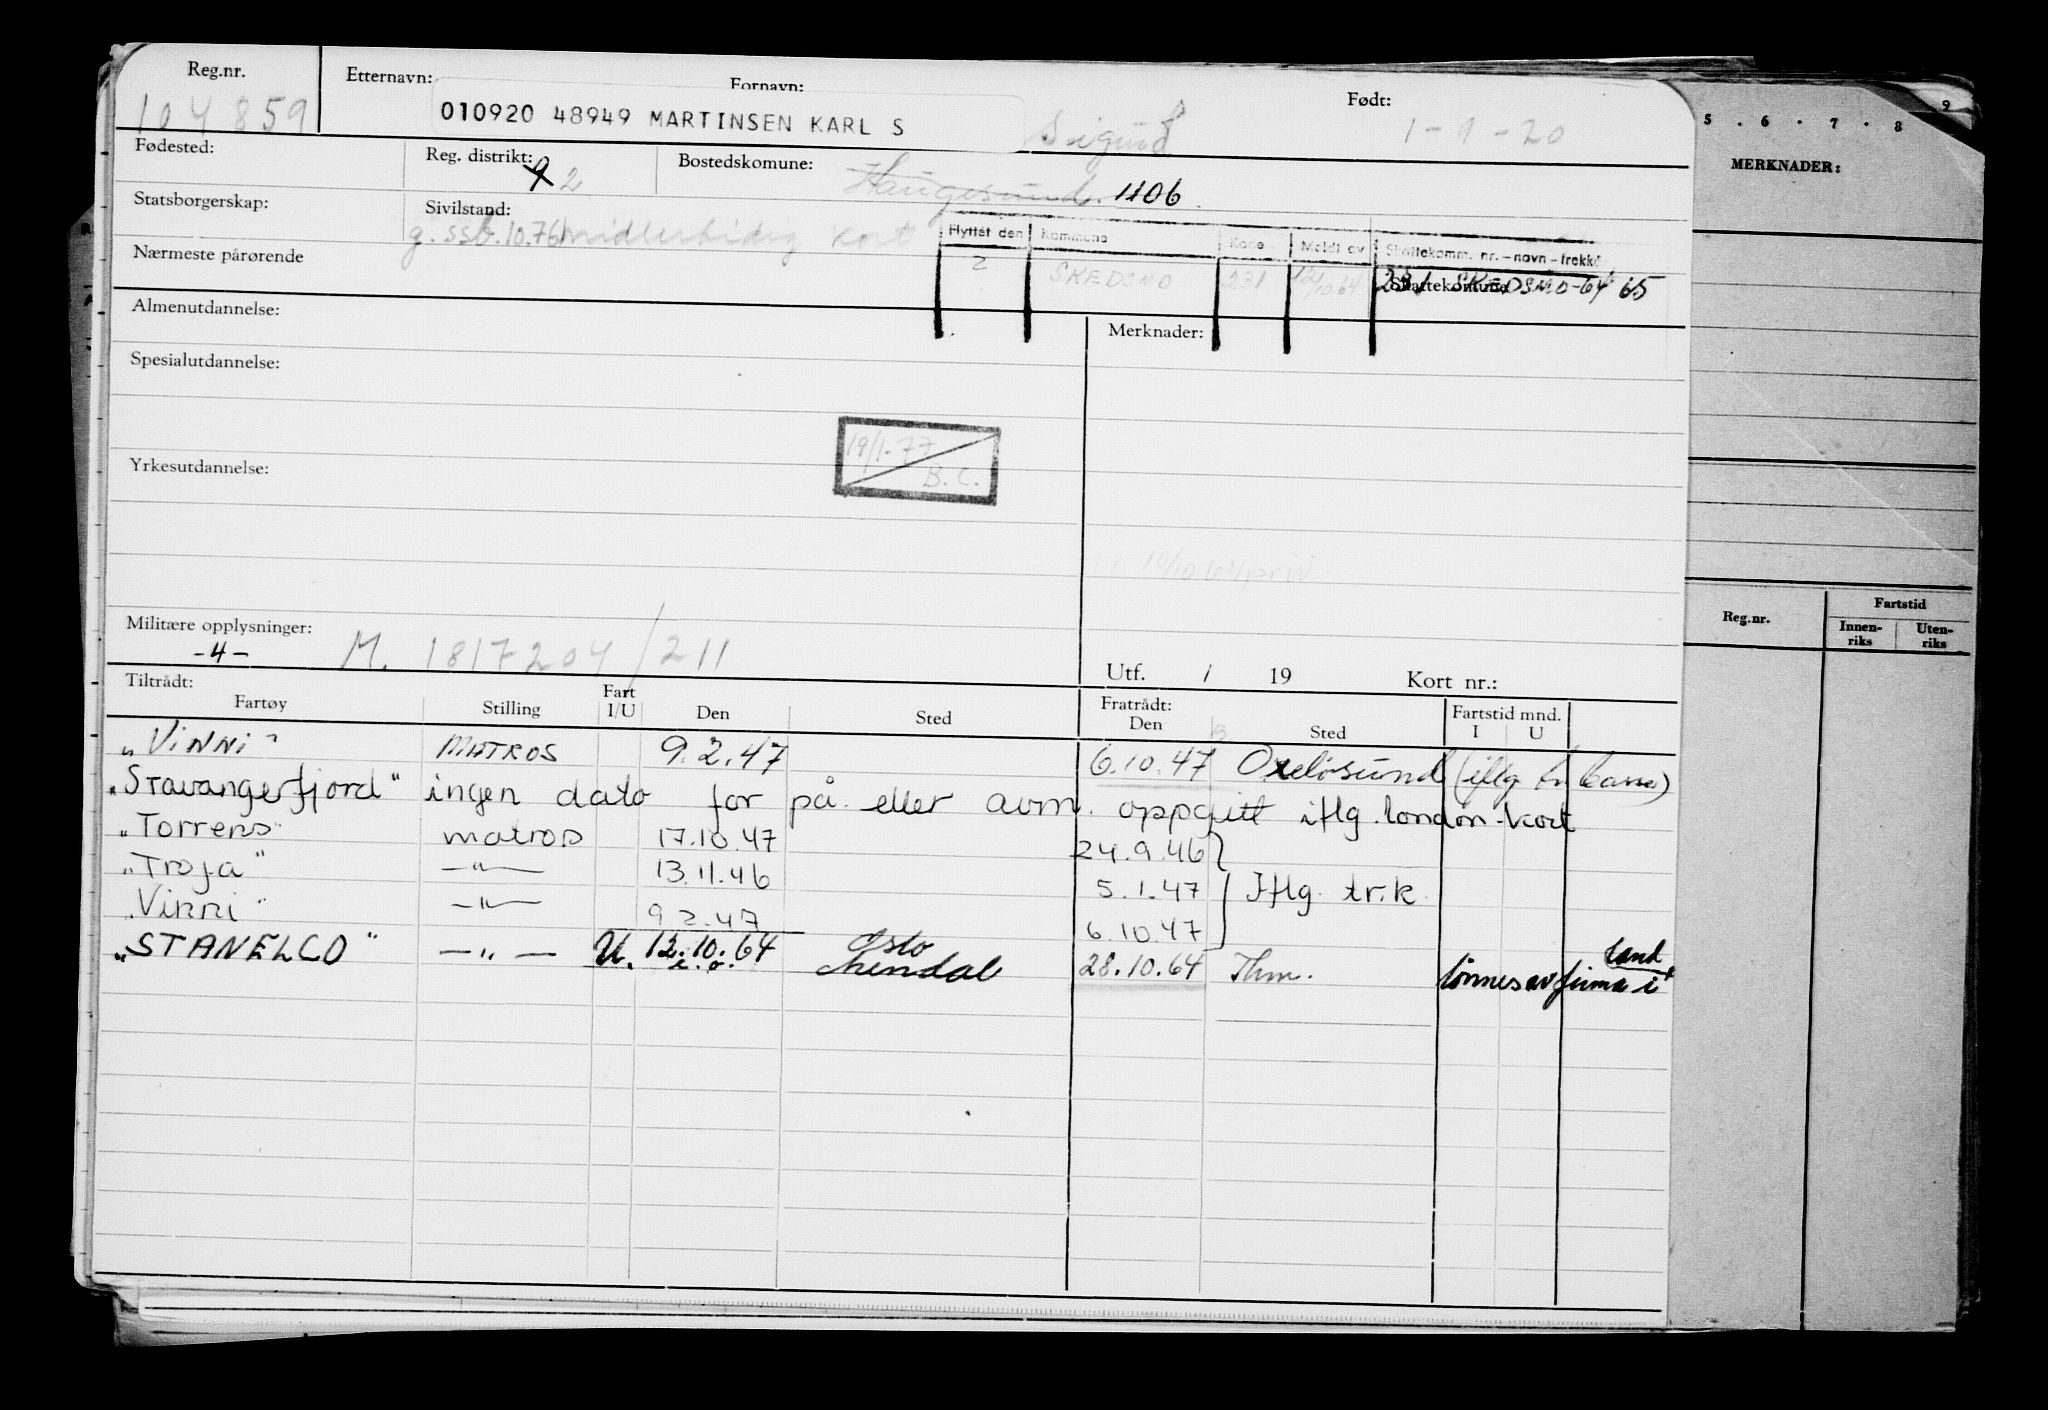 Reg.nr. Etternavn: Fornavn: Født:
104859 010920 48949 MARTINSEN KARL S Sigurd 1-9-20
Fødested: Reg. distrikt: 2 Bostedskomune: Haugesund 1106
Statsborgerskap: Sivilstand:
g. ssb. 10.76 midlertidig kort
Flyttet den Kommune Kode Meldt av Skattekomm. nr.-navn-trekk
Nærmeste pårørende 2 SKEDSMO 231 12/10.64 231 SKEDSMO-64 65
Skattekomune
Almenutdannelse: Merknader:
Spesialutdannelse:
19/1-77
B.C.
Yrkesutdannelse:
Militære opplysninger: M. 1817204/211
-4-
Utf. / 19 Kort nr.:
Tiltrådt: Fratrådt: Fartstid mnd.
Fartøy Stilling Fart I/U Den Sted Den Sted I U
"Vinni" MATROS 9.2.47 6.10.47 Oxeløsund
"Stavangerfjord" ingen dato for på eller avm. oppgitt iflg. london-kort
"Torrens" matros 17.10.47 24.9.46
"Troja" —"— 13.11.46 5.1.47 Iflg. tr.k.
"Vinni" —"— 9.2.47 6.10.47
"STANELCO" —"— U. 12.10.64 Oslo 28.10.64 Thm. lønnes av firma i land
5 . 6 . 7 . 8 9
MERKNADER:
Reg.nr. Fartstid
Innen-riks Uten-riks